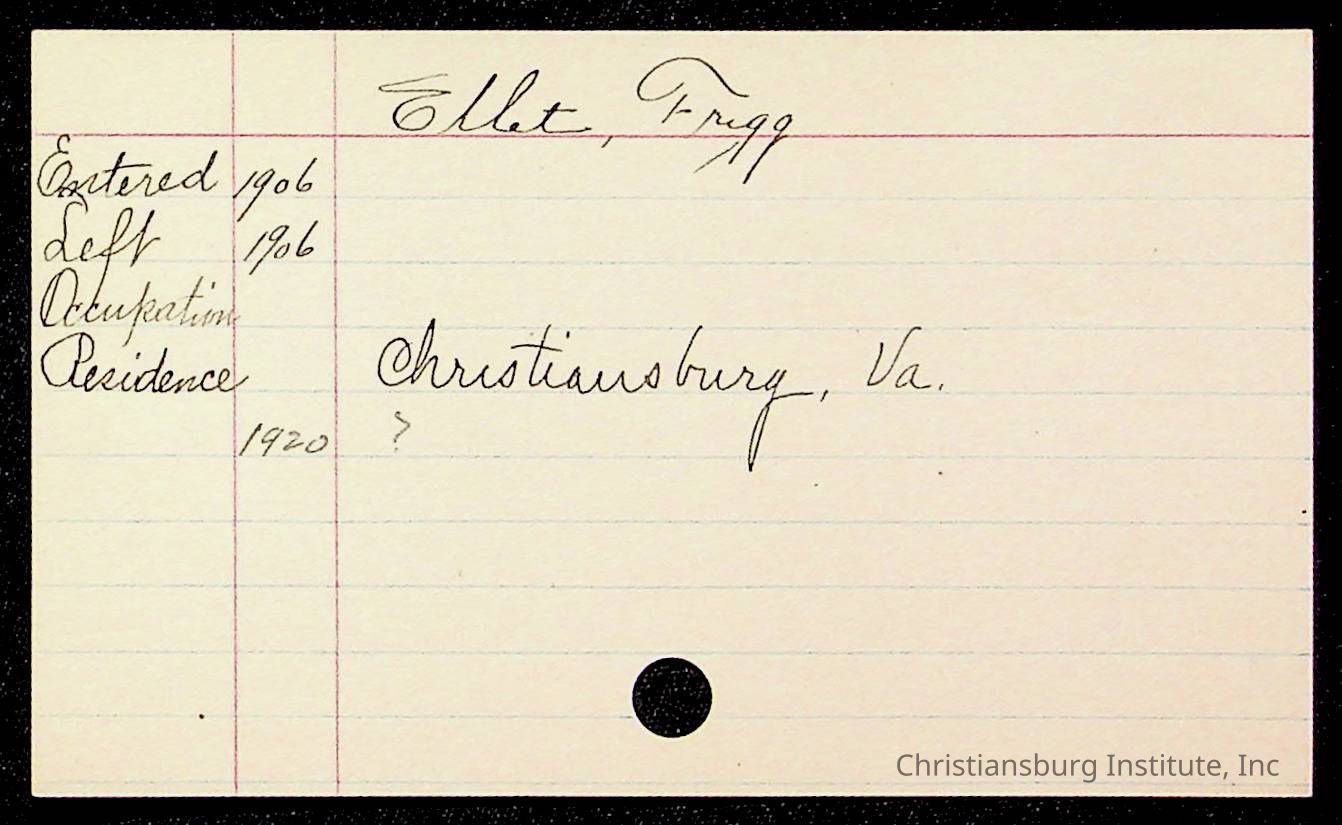 Ellet, Frigg
Entered 1906
Left 1906
Occupation
Residence Christiansburg, Va.
1920 ?
Christiansburg Institute, Inc